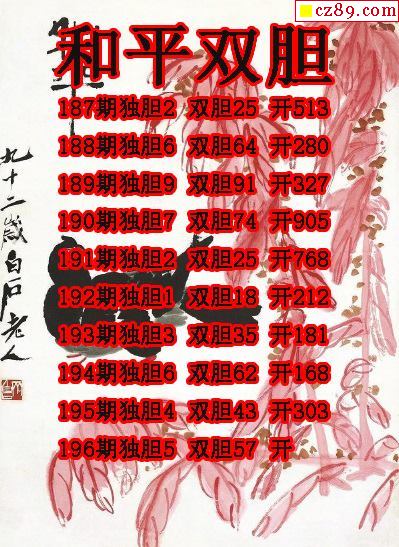 cz89.com
和平双胆
187期独胆2 双胆25 开513
188期独胆6 双胆64 开280
189期独胆9 双胆91 开327
190期独胆7 双胆74 开905
191期独胆2 双胆25 开768
192期独胆1 双胆18 开212
193期独胆3 双胆35 开181
194期独胆6 双胆62 开168
195期独胆4 双胆43 开303
196期独胆5 双胆57 开
九十二岁白石老人